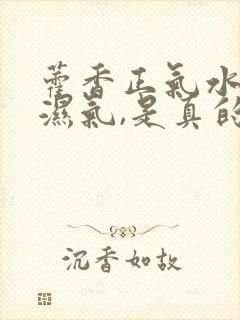 藿香正氣水
濕氣,是真的
沉香如故